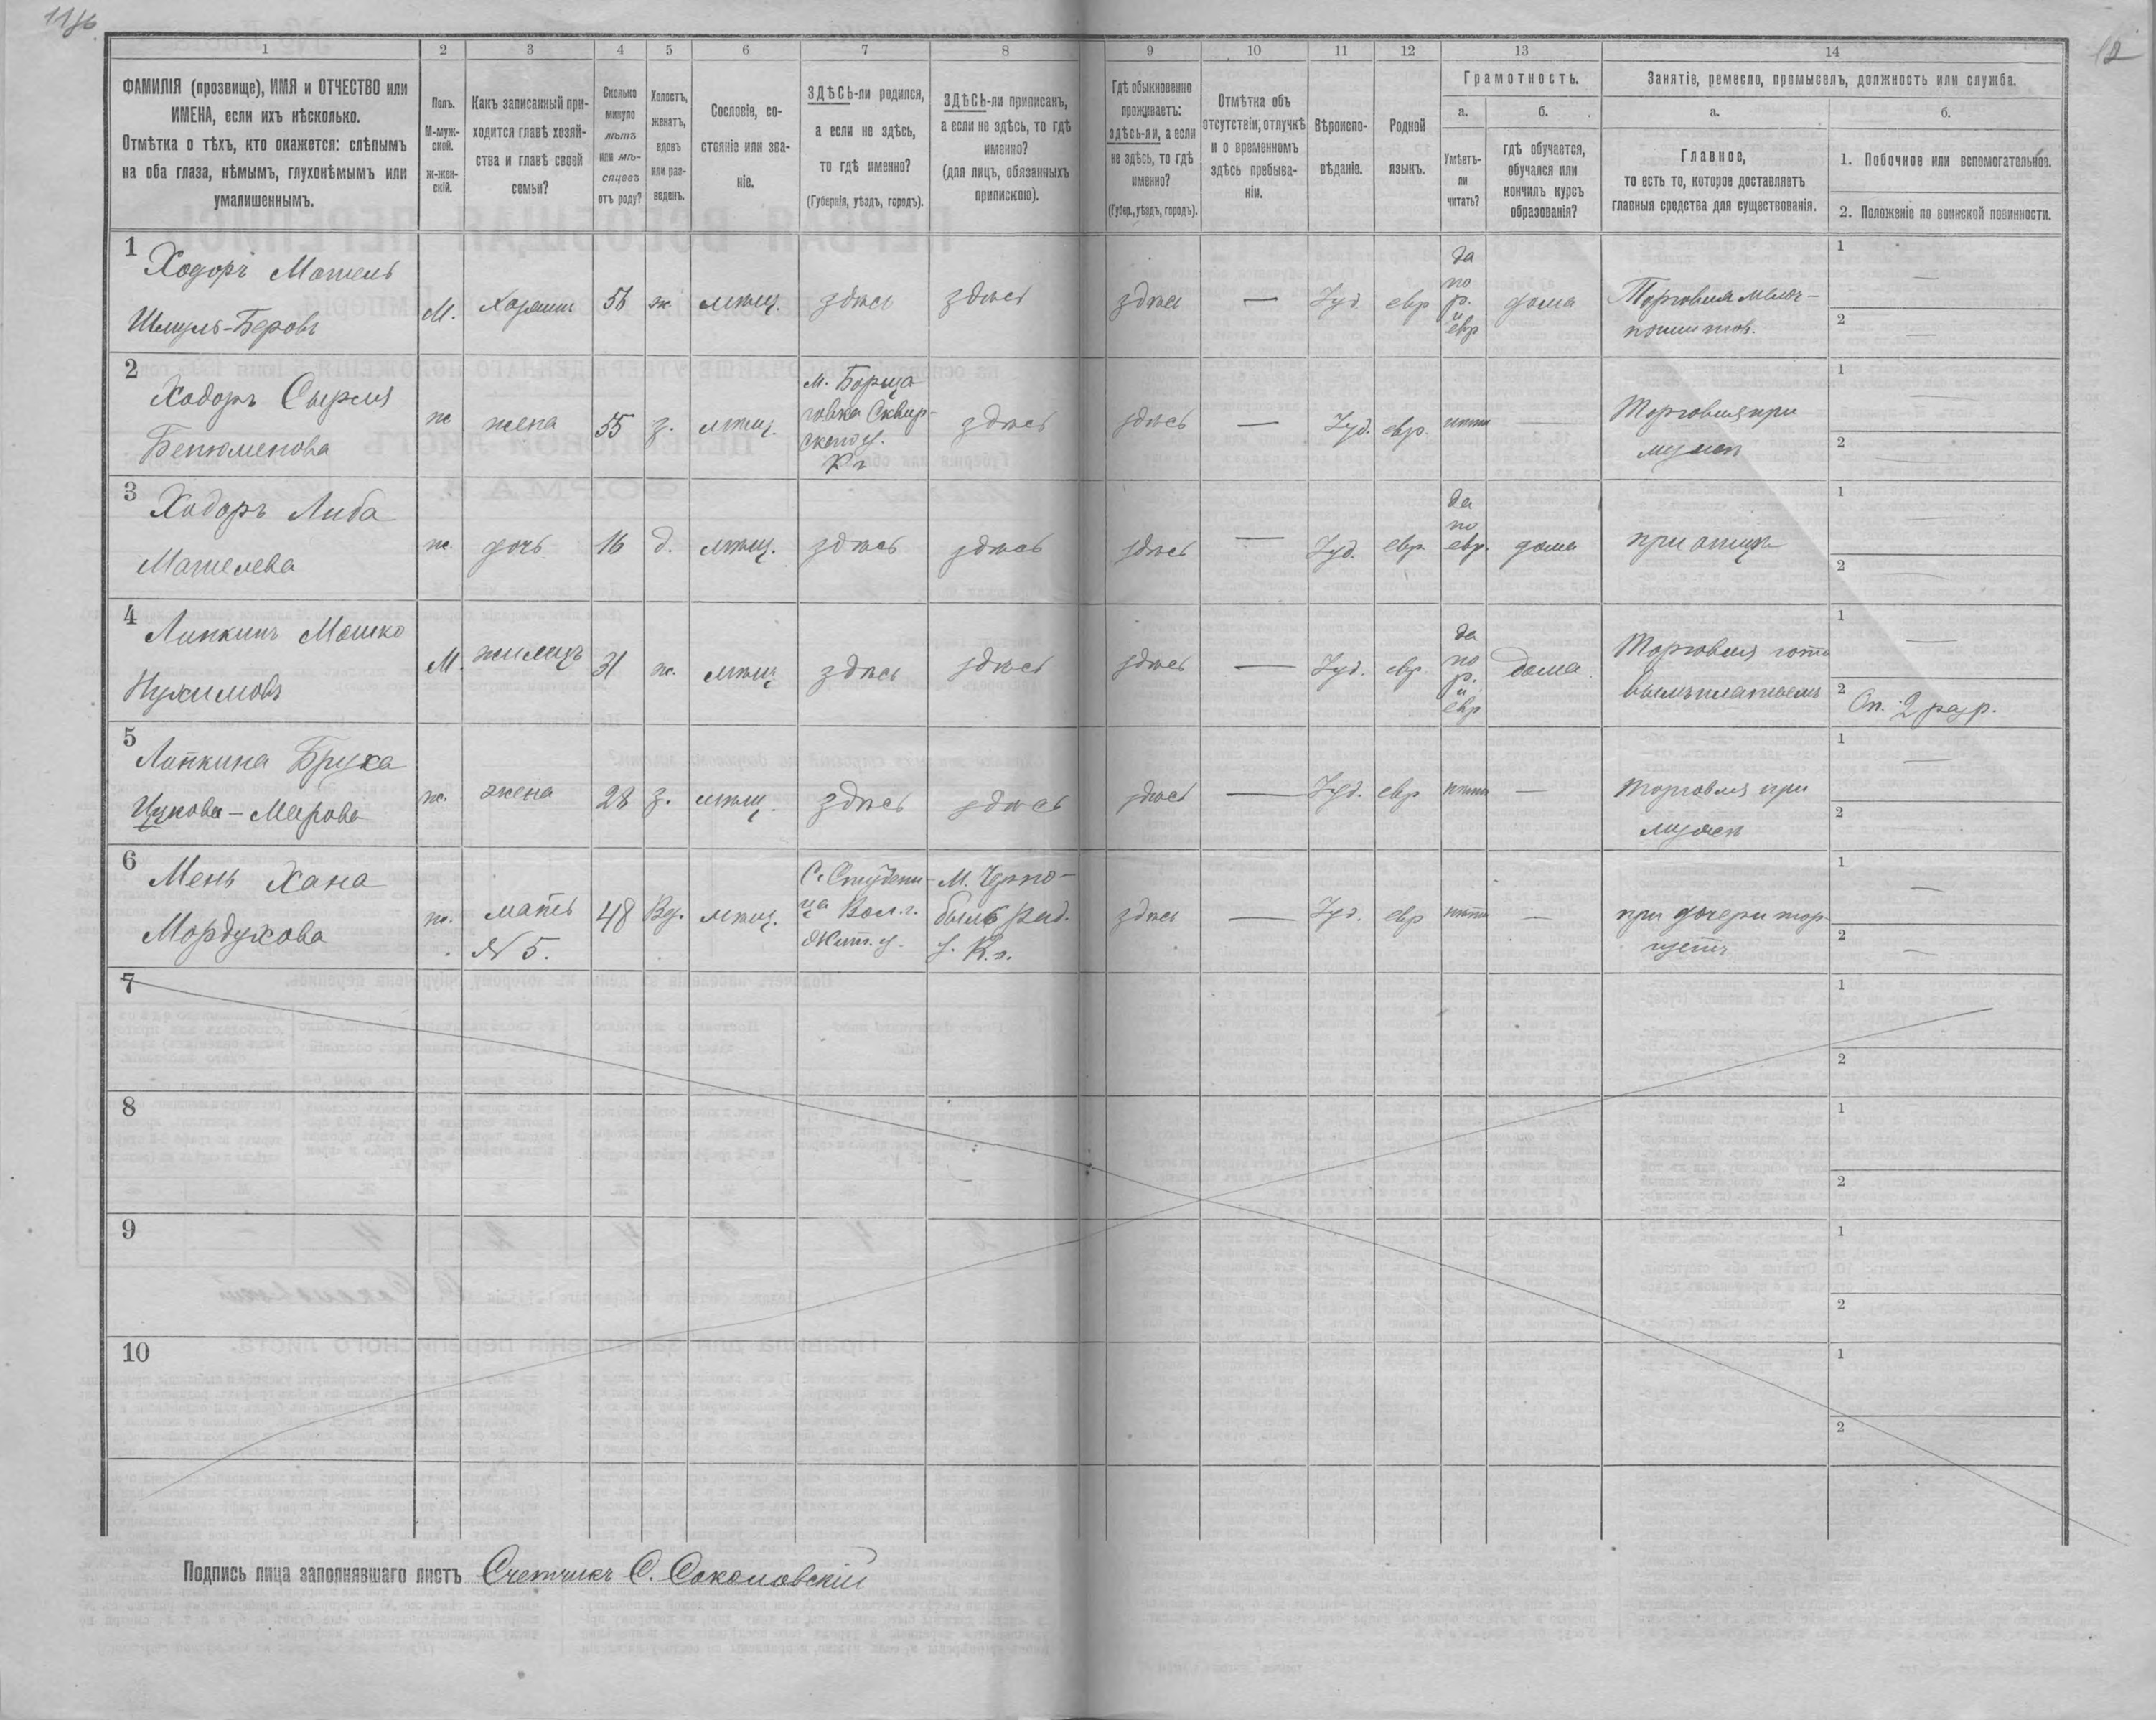 11об.
12
1
2
3
4
5
6
7
8
9
10
11
12
13
14
ФАМИЛІЯ (прозвище), ИМЯ и ОТЧЕСТВО или
ИМЕНА, если ихъ нѣсколько.
Отмѣтка о тѣхъ, кто окажется: слѣпымъ
на оба глаза, нѣмымъ, глухонѣмымъ или
умалишеннымъ.
Полъ.
М-муж-
ской.
Ж-жен-
скій.
Какъ записанный при-
ходится главѣ хозяй-
ства и главѣ своей
семьи?
Сколько
минуло
лѣтъ
или мѣ-
сяцевъ
отъ роду?
Холостъ,
женатъ,
вдовъ
или раз-
веденъ.
Сословіе, со-
стояніе или зва-
ніе.
ЗДѢСЬ-ли родился,
а если не здѣсь,
то гдѣ именно?
(Губернія, уѣздъ, городъ).
ЗДѢСЬ-ли приписанъ,
а если не здѣсь, то гдѣ
именно?
(для лицъ, обязанныхъ
припискою).
Гдѣ обыкновенно
проживаетъ:
здѣсь-ли, а если
не здѣсь, то гдѣ
именно?
(Губер., уѣздъ, городъ).
Отмѣтка объ
отсутствіи, отлучкѣ
и о временномъ
здѣсь пребыва-
ніи.
Вѣроиспо-
вѣданіе.
Родной
языкъ.
Грамотность.
а.
Умѣетъ-
ли
читать?
б.
гдѣ обучается,
обучался или
кончилъ курсъ
образованія?
Занятіе, ремесло, промыселъ, должность или служба.
а.
Главное,
то есть то, которое доставляетъ
главныя средства для существованія.
б.
1. Побочное или вспомогательное.
2. Положеніе по воинской повинности.
1
Ходоръ Мотель
Шмуль-Беровъ
М.
Хозяинъ
56
ж.
мѣщ.
здѣсь
здѣсь
здѣсь
—
Іуд.
евр
да
по
р.
и
евр
дома
Торговля мелоч-
ными тов.
1 —
2 —
2
Ходоръ Сырля
жена
55
з.
мѣщ.
м. Борща
говка Сквир-
скаго у.
К г
здѣсь
здѣсь
—
Іуд.
евр.
нѣтъ
—
Торговля при
мужѣ
1 —
2 —
3
Ходоръ Либа
Мотелева
ж.
дочь
16
д.
мѣщ.
здѣсь
здѣсь
здѣсь
—
Іуд.
евр
да
по
евр.
дома
при отцѣ
1 —
2 —
4
Липкинъ Мошко
Нухимовъ
М.
жилецъ
31
ж.
мѣщ
здѣсь
здѣсь
здѣсь
—
Іуд.
евр
да
по
р.
и
евр
дома
Торговля гото
вымъ платьемъ
1 —
2 Оп. 2 разр.
5
Липкина Бруха
ж.
жена
28
з.
мѣщ.
здѣсь
здѣсь
здѣсь
—
Іуд.
евр
нѣтъ
—
Торговля при
мужѣ
1 —
2 —
6
Мень Хана
Мордухова
ж.
мать
N 5.
48
Вд.
мѣщ.
С. Студени-
ца Вол. г.
Жит. у.
М. Черно-
быль Рад.
у. К. г.
здѣсь
—
Іуд.
евр
нѣтъ
—
при дочери тор-
гуетъ
1 —
2 —
7
1
2
8
1
2
9
1
2
10
1
2
Подпись лица заполнявшаго листъ Счетчикъ С. Соколовскій